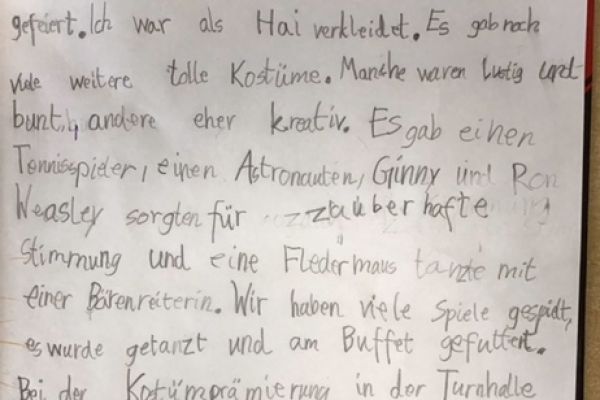 gefeiert. Ich war als Hai verkleidet. Es gab noch
viele weitere tolle Kostüme. Manche waren lustig und
bunt, andere eher kreativ. Es gab einen
Tennisspieler, einen Astronauten, Ginny und Ron
Weasley sorgten für zzauberhafte
Stimmung und eine Fledermaus tanzte mit
einer Bärenreiterin. Wir haben viele Spiele gespielt,
es wurde getanzt und am Buffet gefuttert.
Bei der Kostümprämierung in der Turnhalle